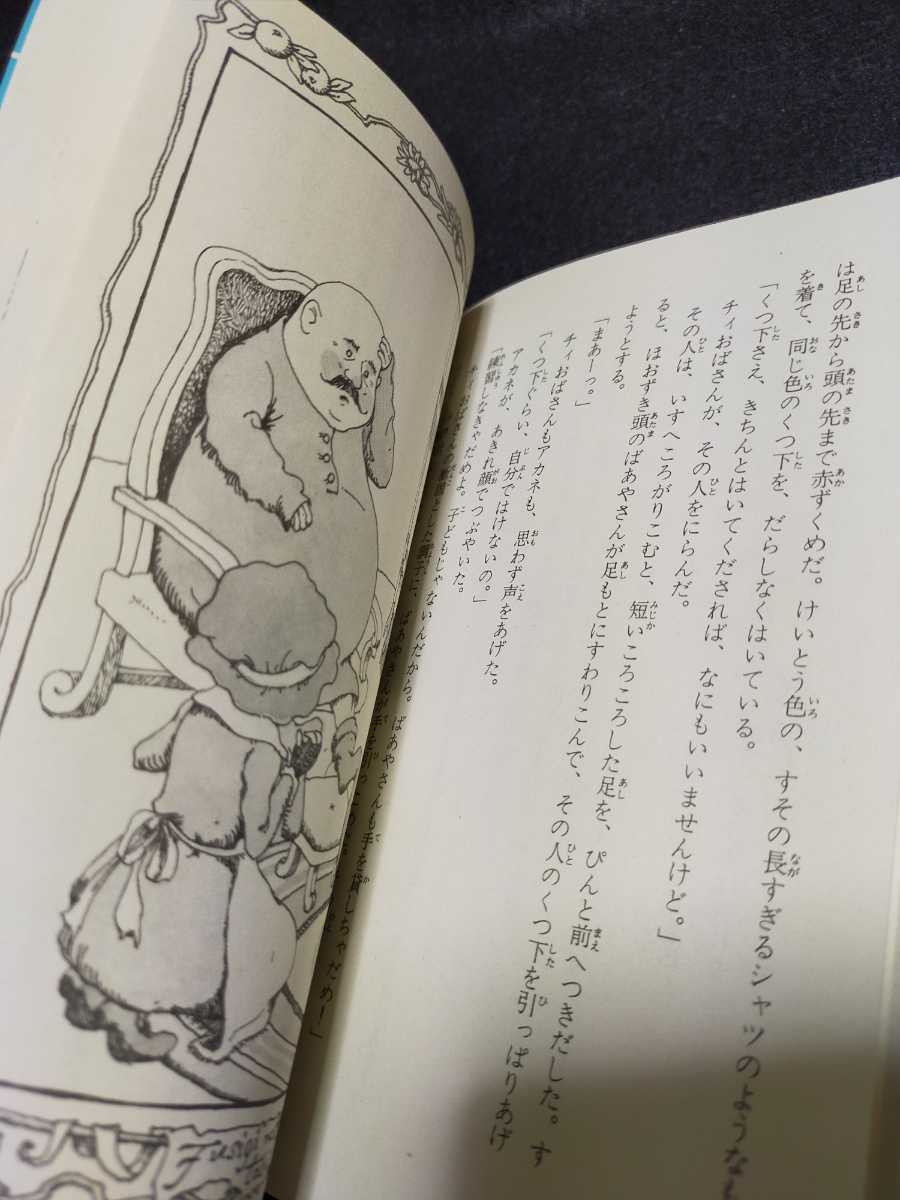 は足の先から頭の先まで赤ずくめだ。けいとう色の、すその長すぎるシャツのような
を着て、同じ色のくつ下を、だらしなくはいている。
「くつ下さえ、きちんとはいてくだされば、なにもいいませんけど。」
チィおばさんが、その人をにらんだ。
その人は、いすへころがりこむと、短いころころした足を、ぴんと前へつきだした。す
ると、ほおずき頭のばあやさんが足もとにすわりこんで、その人のくつ下を引っぱりあげ
ようとする。
「まあーっ。」
チィおばさんもアカネも、思わず声をあげた。
「くつ下ぐらい、自分ではけないの。」
アカネが、あきれ顔でつぶやいた。
「練習しなきゃだめよ。子どもじゃないんだから。ばあやさんも手を貸しちゃだめ！」
チィおばさんの
ばあやさんが手を引っこめ